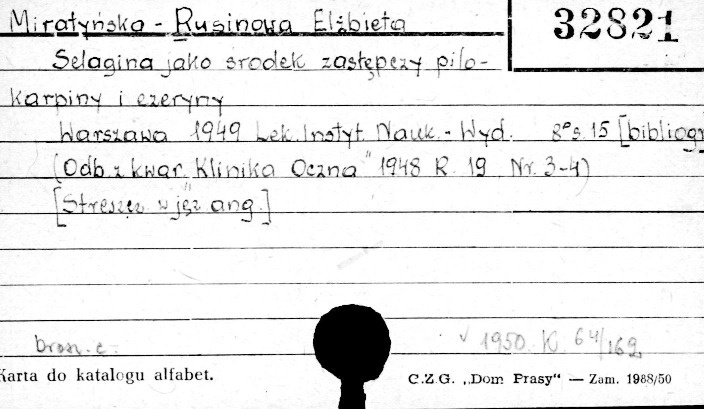 Miratyńska - Rusinowa Elżbieta
32821
Selagina jako środek zastępczy pilo-
karpiny i ezeryny
Warszawa 1949 Lek. Instyt. Nauk. - Wyd. 8° s. 15 [bibliogr
(Odb. z kwar. "Klinika Oczna" 1948 R. 19 Nr. 3-4)
[Streszcz. w jęz. ang.]
brosz. c.
√ 1950 K 64/162
Karta do katalogu alfabet.
C.Z.G. „Dom Prasy" — Zam. 1988/50